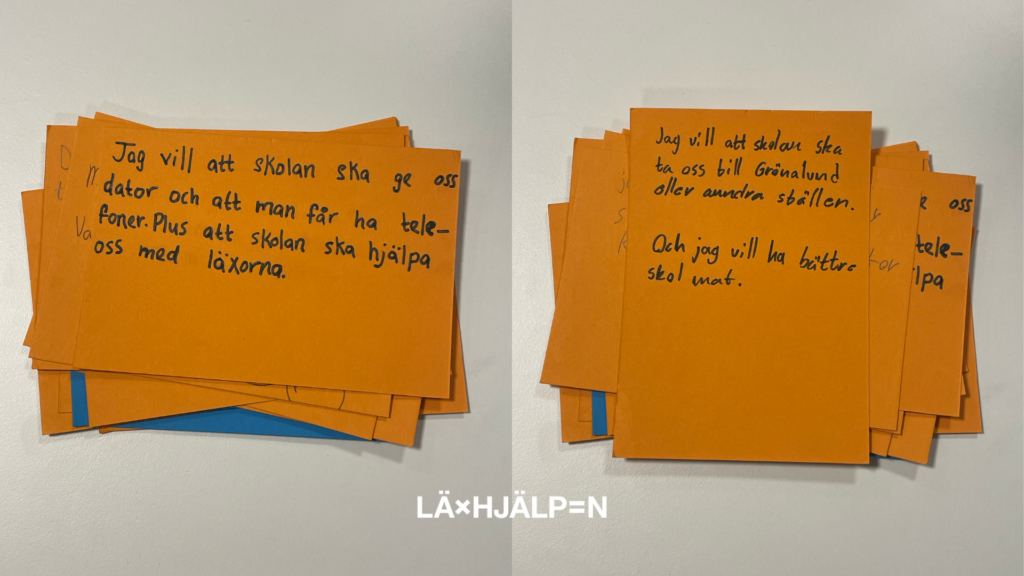 Jag vill att skolan ska ge oss
dator och att man får ha tele-
foner. Plus att skolan ska hjälpa
oss med läxorna.
Va
Jag vill att skolan ska
ta oss bill Grönalund
eller anndra sbällen.
Och jag vill ha bättre
skol mat.
oss
tele-
lpa
LÄ×HJÄLP=N